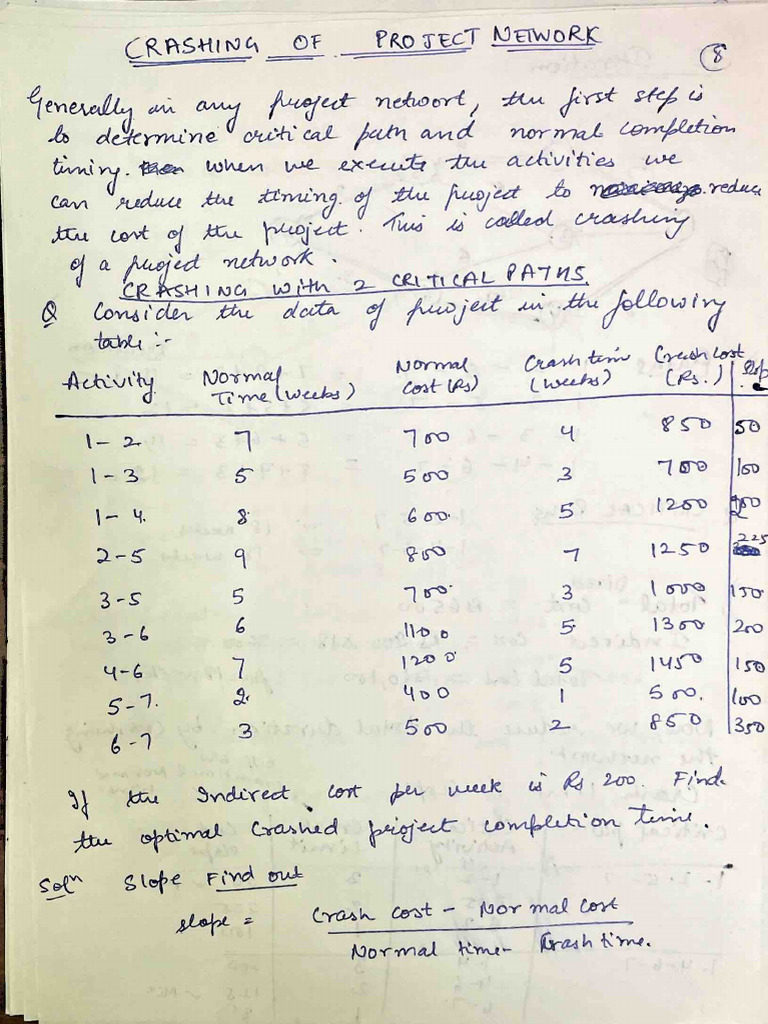 CRASHING OF PROJECT NETWORK
8
Generally in any project network, the first step is
to determine critical path and normal completion
timing. when we execute the activities we
can reduce the timing of the project to reduce
the cost of the project. This is called crashing
of a project network.
CRASHING WITH 2 CRITICAL PATHS.
Q Consider the data of project in the following
table :-
Activity Normal Time (weeks) Normal Cost (Rs) Crash time (weeks) Crash cost (Rs.) Slop
1-2 7 700 4 850 50
1-3 5 500 3 700 100
1-4. 8 600. 5 1200 200
2-5 9 800 7 1250 225
3-5 5 700. 3 1000 150
3-6 6 1100 5 1300 200
4-6 7 1200 5 1450 150
5-7. 2 400 1 500. 100
6-7 3 500 2 850 350
If the Indirect cost per week is Rs. 200. Find
the optimal crashed project completion time.
Solⁿ Slope Find out
slope = Crash cost - Normal cost
Normal time - Crash time.